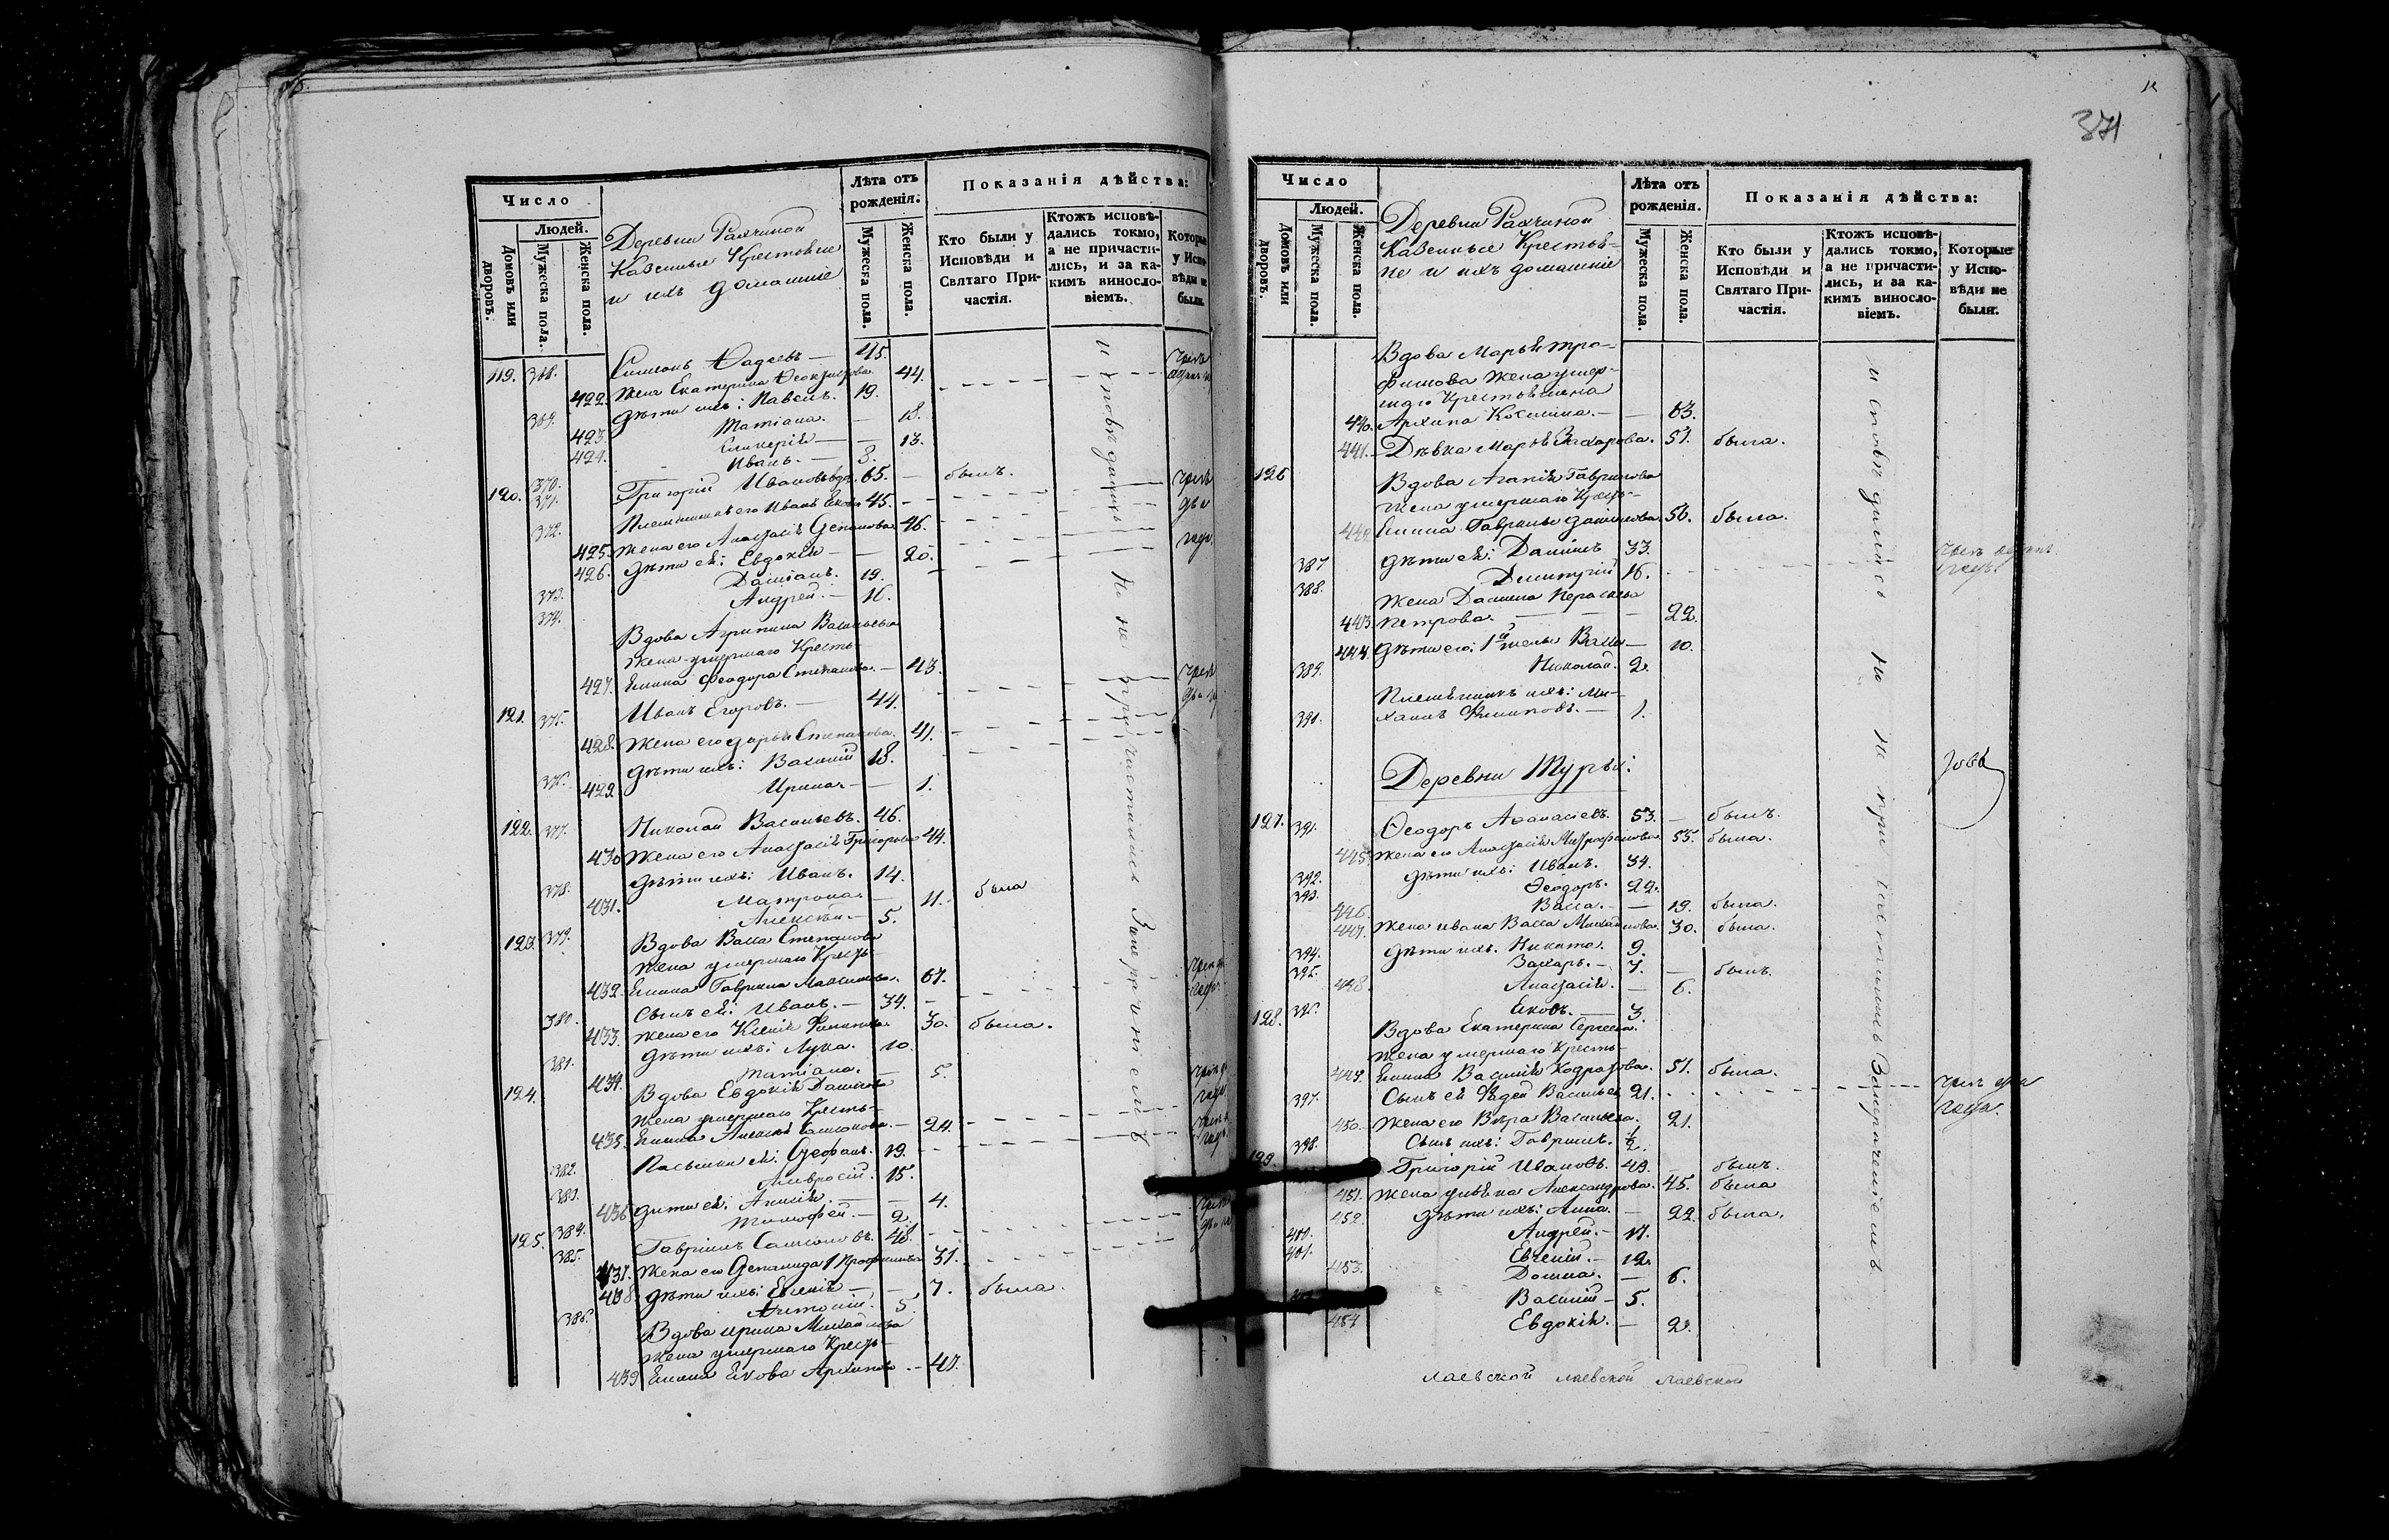 Число
Людей.
Домовъ или дворовъ.
Мужеска пола.
Женска пола.
Деревни Рахчиной
Казенные Крестьяне
и ихъ домашніе
Лѣта отъ рожденія.
Мужеска пола.
Женска пола.
Показанія дѣйства:
Кто были у Исповѣди и Святаго Причастія.
Ктожъ исповѣдались токмо, а не причастились, и за какимъ винословіемъ.
Которые у Исповѣди не были.
119. 368. Симеонъ Фадеевъ — 45.
422. Жена Екатерина 44.
369. Дѣти ихъ: Павелъ. 19.
423. Татіана. — 18.
424. — 13.
370. Иванъ. — 3.
120. 371. Григорій Ивановъ вдов. 65. — былъ.
372. Племянникъ его Иванъ 45. —
425. Жена его Анастасія Степанова 46.
426. Дѣти ея: Евдокія — 20.
373. Даміанъ. 19.
374. Андрей. — 16.
Вдова Агрипина Васильева
Жена умершаго Кресть-
427. янина Феодора Степанова. — 43.
121. 375. Иванъ Егоровъ. — 44.
428. Жена его Дарья Степанова. 41.
376. Дѣти ихъ: Василій 18.
429. Ирина — 1.
122. 377. Николай Васильевъ. 46.
430 Жена его Анастасія Григорьева 44.
378. Дѣти ихъ: Иванъ. 14.
431. Матрона. — 11. была
379. Алексѣй. — 5.
123. Вдова Васса Степанова
Жена умершаго Кресть-
432. янина Гавріила Максимова. 67.
380. Сынъ ея: Иванъ. — 34. —
433. Жена его Ксенія Филипова. 30. была.
381. Дѣти ихъ: Лука. 10.
434. Татіана. — 5.
124. Вдова Евдокія Данилова
Жена умершаго Кресть-
435. янина Алексѣя Самсонова. — 24.
382. Пасынки ея: Стефанъ. 19.
383. Амвросій. 15.
436 Дѣти ея: — 4.
384. Тимофей. — 2.
125. 385. Гавріилъ Самсоновъ. 48.
437. Жена его Степанида Трофимова 31.
438. Дѣти ихъ: Евгенія — 7. была.
386. Антоній. 5.
Вдова Ирина Михайлова
Жена умершаго Кресть-
439 янина Якова Архипова. — 40.
исповѣдались но не причастились за нераченіемъ
371
Число
Людей.
Домовъ или дворовъ.
Мужеска пола.
Женска пола.
Деревни Рахчиной
Казенные Крестья-
не и ихъ домашніе
Лѣта отъ рожденія.
Мужеска пола.
Женска пола.
Показанія дѣйства:
Кто были у Исповѣди и Святаго Причастія.
Ктожъ исповѣдались токмо, а не причастились, и за какимъ винословіемъ.
Которые у Исповѣди не были.
Вдова Марья Тро-
фимова Жена умер-
шаго Крестьянина
440. Архипа — 63.
441. Дѣвка Марья Захарова. 51. была.
126 Вдова Агапія Гаврилова
Жена умершаго Кресть-
442 янина Гавріила Данилова. 56. была.
387 Дѣти ея: Даніилъ 33.
388. Димитрій 16.
Жена Данила
443 Петрова. — 22.
444. Дѣти его: 1й жены Васса — 10.
389. Николай. 2.
Племянникъ ихъ: Ми-
390. хаилъ Филиповъ. — 1.
Деревни Туры:
127. 391. Ѳеодоръ Аѳанасіевъ. 53. — былъ.
445. Жена его Анастасія Митрофанова. 55. была.
392. Дѣти ихъ: Иванъ. 34.
393. Ѳеодоръ. 22.
446. Васса. — 19. была.
447. Жена Ивана Васса Михайлова. 30. была.
394. Дѣти ихъ. Никита. 9.
395. Захаръ. — 7. — былъ.
448. Анастасія. — 6.
396. Яковъ. — 3.
128. Вдова Екатерина Сергеева.
Жена умершаго Кресть-
449. янина Василія Кодратова. 51. была.
397. Сынъ ея Фадей Васильевъ 21.
450. Жена его Вѣра Васильева. 21.
398. Сынъ ихъ: Гавріилъ. 1/2.
129. Григорій Ивановъ. 49. — былъ.
451. Жена Ульяна Александрова. 45. была
452. Дѣти ихъ: Анна. — 22. была.
400. Андрей. — 17.
401. Евгеній. — 12.
453. Домна. — 6.
Василій — 5.
454 Евдокія. — 2.
исповѣдались но не причастились за нераченіемъ
лаевской лаевской лаевской